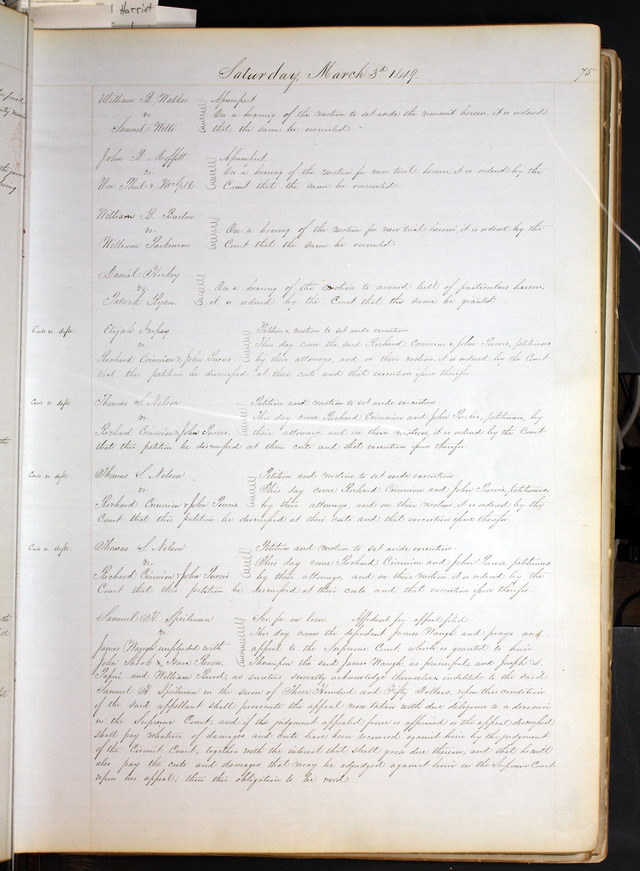 Harriet
Saturday, March 3d 1849.
75
William B. Walker
vs
Samuel Willi
Assumpsit
On a hearing of the motion to set aside the nonsuit herein, it is ordered
that the same be overruled.
John B. Moffett
vs.
Wm Phul & McGill
Assumpsit
On a hearing of the motion for new trial herein it is ordered by the
Court that the same be overruled
William B. Barton
vs.
William Parkinson
On a hearing of the motion for new trial herein it is ordered by the
Court that the same be overruled
Daniel
vs
Patrick Ryan
On a hearing of the motion to amend bill of particulars herein,
it is ordered by the Court that the same be granted
Costs vs Defts.
Elijah Impey
vs
Richard Cimmion & John Purvis
Petition & motion to set aside execution
This day came the said Richard Cimmion & John Purvis, petitioners
by their attorneys, and on their motion it is ordered by the Court
that this petition be dismissed at their costs and that execution issue therefor.
Costs vs Defts.
Thomas S. Nelson
vs
Richard Cimmion & John Purvis
Petition and motion to set aside execution
This day come Richard Cimmion and John Purvis, petitioners, by
their attorneys and on their motion, it is ordered by the Court
that this petition be dismissed at their costs and that execution issue therefor.
Costs vs Defts.
Thomas S. Nelson
vs
Richard Cimmion & John Purvis
Petition and motion to set aside execution
This day come Richard Cimmion and John Purvis, petitioners,
by their attorneys, and on their motion it is ordered by the
Court that this petition be dismissed at their costs and that execution issue therefor.
Costs vs Defts.
Thomas S. Nelson
vs.
Richard Cimmion & John Purvis
Petition and motion to set aside execution
This day come Richard Cimmion and John Purvis, petitioners
by their attorneys, and on their motion it is ordered by the
Court that this petition be dismissed at their costs and that execution issue therefor.
Samuel H. Speilman
vs
James Waugh impleaded with
John Shook & Isaac
Sci. fa. on lien. Affidavit for appeal filed.
This day comes the defendant James Waugh and prays an
appeal to the Supreme Court which is granted to him
Thereupon the said James Waugh as principal and Joseph S.
and William as sureties severally acknowledge themselves indebted to the said
Samuel H. Speilman in the sum of Three Hundred and Fifty Dollars, upon this condition
if the said appellant shall prosecute the appeal now taken with due diligence to a decision
in the Supreme Court; and if the judgment appealed from is affirmed or the appeal dismissed
shall pay whatever of damages and costs have been recovered against him by the judgment
of the Circuit Court, together with the interest that shall grow due thereon, and that he will
also pay the costs and damages that may be adjudged against him in the Supreme Court
upon his appeal; then this obligation to be void